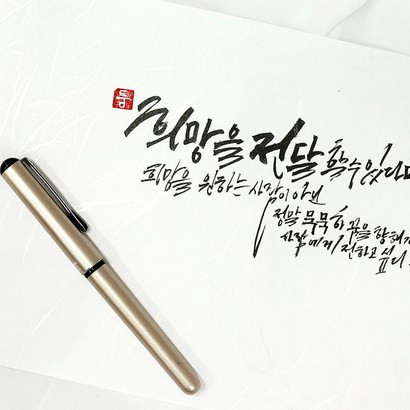 희망을 전달할 수 있다면
희망을 원하는 사람이 아닌
정말 묵묵히 꿈을 향해가
사람에게 전하고 싶